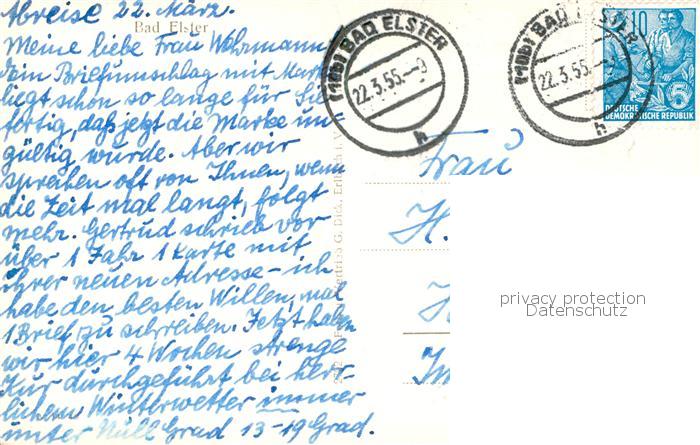 Abreise 22. März.
Bad Elster
Meine liebe Frau Wöhrmann,
ein Briefumschlag mit Marke
liegt schon so lange für Sie
fertig, daß jetzt die Marke un-
gültig wurde. Aber wir
sprechen oft von Ihnen, wenn
die Zeit mal langt, folgt
mehr. Gertrud schrieb vor
über 1 Jahr 1 Karte mit
ihrer neuen Adresse - ich
habe den besten Willen, mal
1 Brief zu schreiben. Jetzt haben
wir hier 4 Wochen strenge
Kur durchgeführt bei herr-
lichem Winterwetter immer
unter Null Grad 13-19 Grad.
(10b) BAD ELSTER
22.3.55.-9
h
(10b) BAD ELSTER
22.3.55.-9
h
10
5
DEUTSCHE
DEMOKRATISCHE REPUBLIK
Frau
H.
privacy protection
Datenschutz